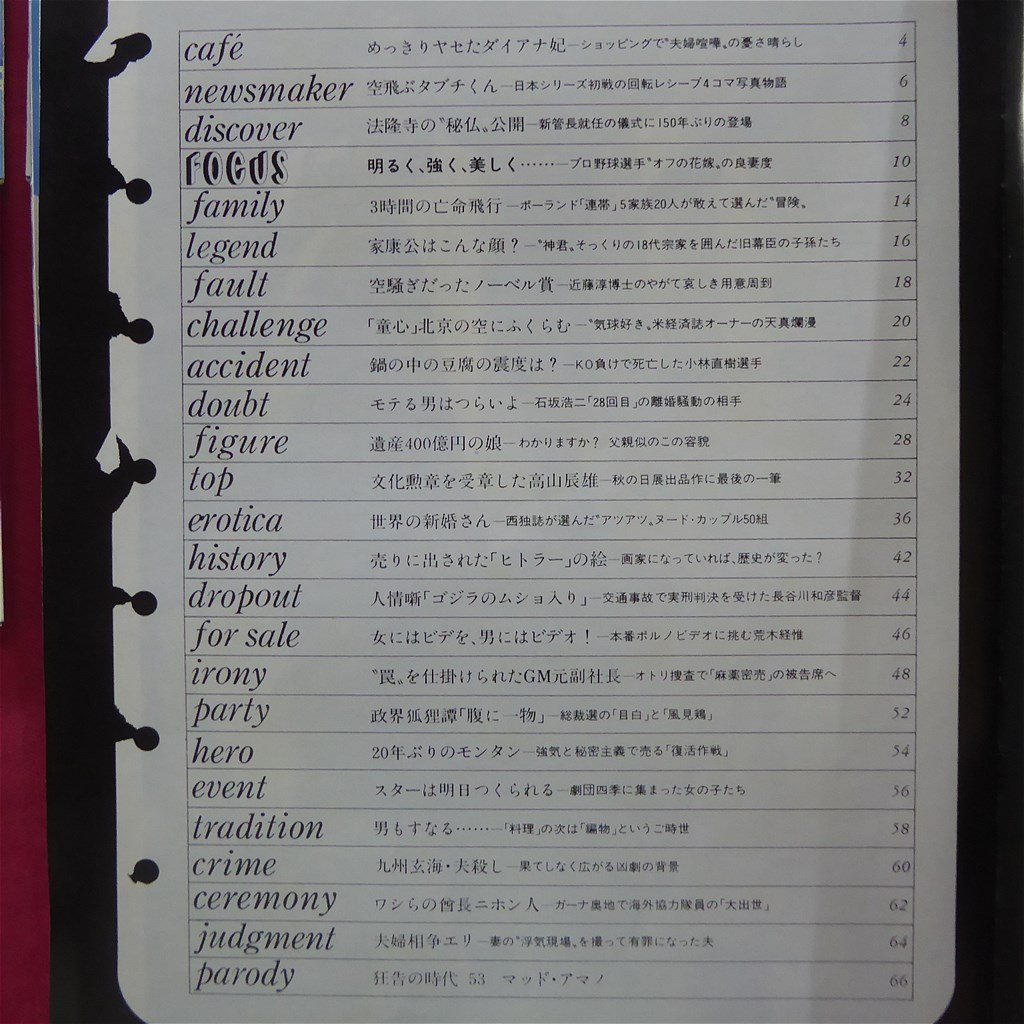 café めっきりヤセたダイアナ妃―ショッピングで〝夫婦喧嘩〟の憂さ晴らし 4
newsmaker 空飛ぶタブチくん―日本シリーズ初戦の回転レシーブ4コマ写真物語 6
discover 法隆寺の〝秘仏〟公開―新管長就任の儀式に150年ぶりの登場 8
FOCUS 明るく、強く、美しく……―プロ野球選手〝オフの花嫁〟の良妻度 10
family 3時間の亡命飛行―ポーランド「連帯」5家族20人が敢えて選んだ〝冒険〟 14
legend 家康公はこんな顔?―〝神君〟そっくりの18代宗家を囲んだ旧幕臣の子孫たち 16
fault 空騒ぎだったノーベル賞―近藤淳博士のやがて哀しき用意周到 18
challenge 「童心」北京の空にふくらむ―〝気球好き〟米経済誌オーナーの天真爛漫 20
accident 鍋の中の豆腐の震度は?―KO負けで死亡した小林直樹選手 22
doubt モテる男はつらいよ―石坂浩二「28回目」の離婚騒動の相手 24
figure 遺産400億円の娘―わかりますか? 父親似のこの容貌 28
top 文化勲章を受章した高山辰雄―秋の日展出品作に最後の一筆 32
erotica 世界の新婚さん―西独誌が選んだ〝アツアツ〟ヌード・カップル50組 36
history 売りに出された「ヒトラー」の絵―画家になっていれば、歴史が変った? 42
dropout 人情噺「ゴジラのムショ入り」―交通事故で実刑判決を受けた長谷川和彦監督 44
for sale 女にはビデを、男にはビデオ!―本番ポルノビデオに挑む荒木経惟 46
irony 〝罠〟を仕掛けられたGM元副社長―オトリ捜査で「麻薬密売」の被告席へ 48
party 政界狐狸譚「腹に一物」―総裁選の「目白」と「風見鶏」 52
hero 20年ぶりのモンタン―強気と秘密主義で売る「復活作戦」 54
event スターは明日つくられる―劇団四季に集まった女の子たち 56
tradition 男もすなる……―「料理」の次は「編物」というご時世 58
crime 九州玄海・夫殺し―果てしなく広がる凶劇の背景 60
ceremony ワシらの酋長ニホン人―ガーナ奥地で海外協力隊員の「大出世」 62
judgment 夫婦相争エリ―妻の〝浮気現場〟を撮って有罪になった夫 64
parody 狂告の時代 53 マッド・アマノ 66